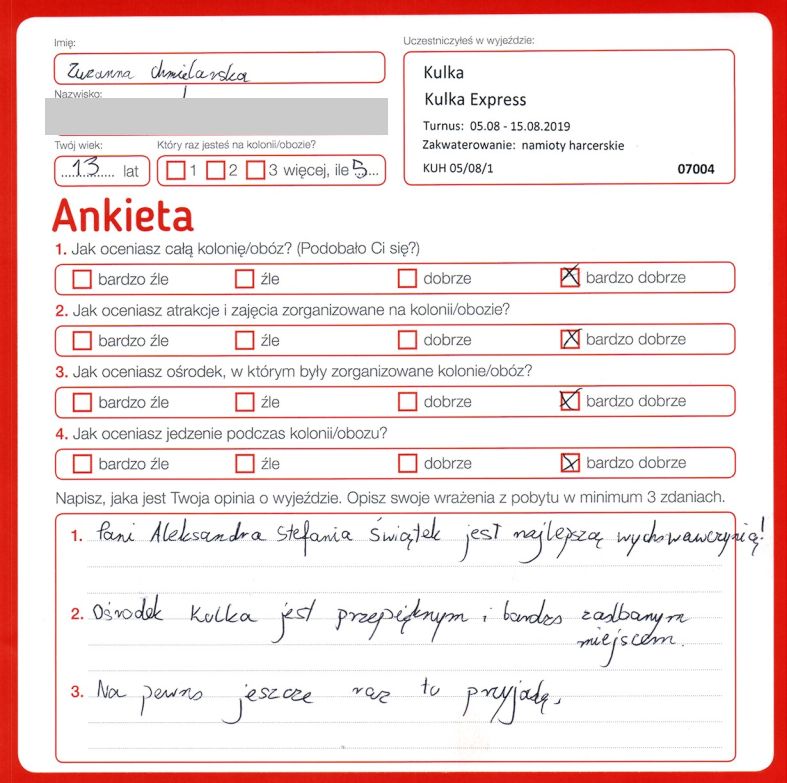 Imię:
Zuzanna Chmielarska
Nazwisko:
Twój wiek:
13 lat
Który raz jesteś na kolonii/obozie?
1 2 3 więcej, ile 5...
Uczestniczyłeś w wyjeździe:
Kulka
Kulka Express
Turnus: 05.08 - 15.08.2019
Zakwaterowanie: namioty harcerskie
KUH 05/08/1 07004
Ankieta
1. Jak oceniasz całą kolonię/obóz? (Podobało Ci się?)
bardzo źle źle dobrze bardzo dobrze
2. Jak oceniasz atrakcje i zajęcia zorganizowane na kolonii/obozie?
bardzo źle źle dobrze bardzo dobrze
3. Jak oceniasz ośrodek, w którym były zorganizowane kolonie/obóz?
bardzo źle źle dobrze bardzo dobrze
4. Jak oceniasz jedzenie podczas kolonii/obozu?
bardzo źle źle dobrze bardzo dobrze
Napisz, jaka jest Twoja opinia o wyjeździe. Opisz swoje wrażenia z pobytu w minimum 3 zdaniach.
1. Pani Aleksandra Stefania Świątek jest najlepszą wychowawczynią!
2. Ośrodek Kulka jest przepięknym i bardzo zadbanym
miejscem.
3. Na pewno jeszcze raz tu przyjadę.